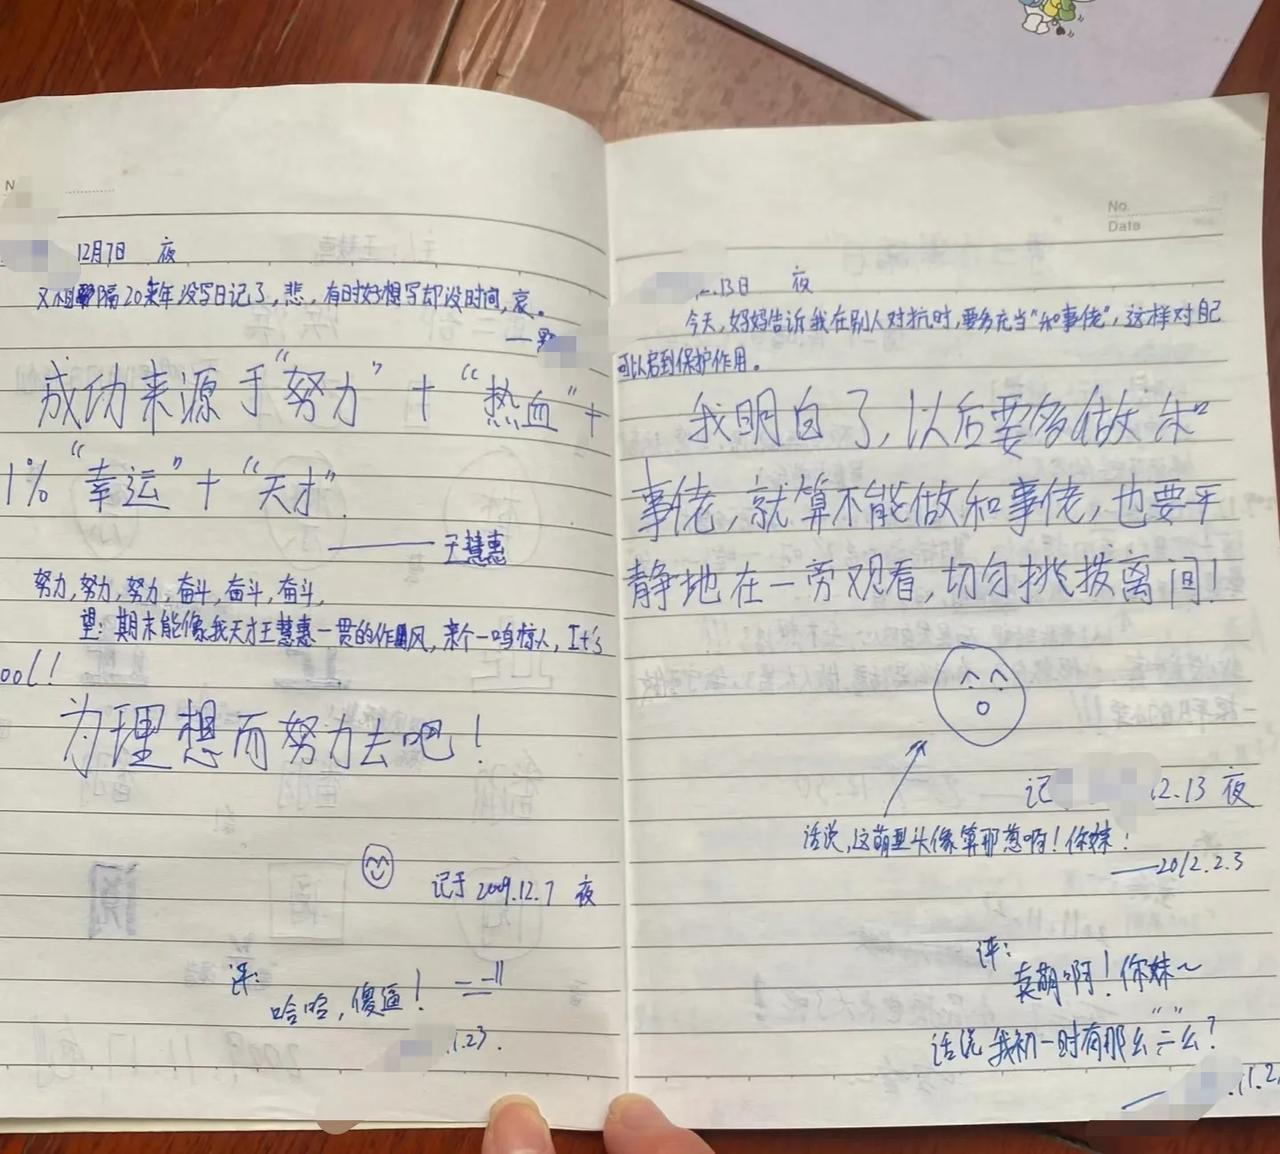 N
12月7日 夜
又相隔20来年没写日记了,悲,有时好想写却没时间,哀。
成功来源于“努力”+“热血”+
1%“幸运”+“天才”
——王慧惠
努力,努力,努力,奋斗,奋斗,奋斗,
望:期末能像我天才王慧惠一贯的作风,来个一鸣惊人,It's
ool!
为理想而努力去吧!
记于2009.12.7 夜
评:
哈哈,傻逼! ==||
.1.23.
No.
Date
.13日 夜
今天,妈妈告诉我在别人对抗时,要多充当“和事佬”,这样对自己
可以启到保护作用。
我明白了,以后要多做“和
事佬,就算不能做和事佬,也要平
静地在一旁观看,切勿挑拨离间!
记 12.13 夜
话说,这萌型头像算那葱啊!你妹!
——2012.2.3
评:
卖萌啊!你妹~
话说我初一时有那么“二”么?